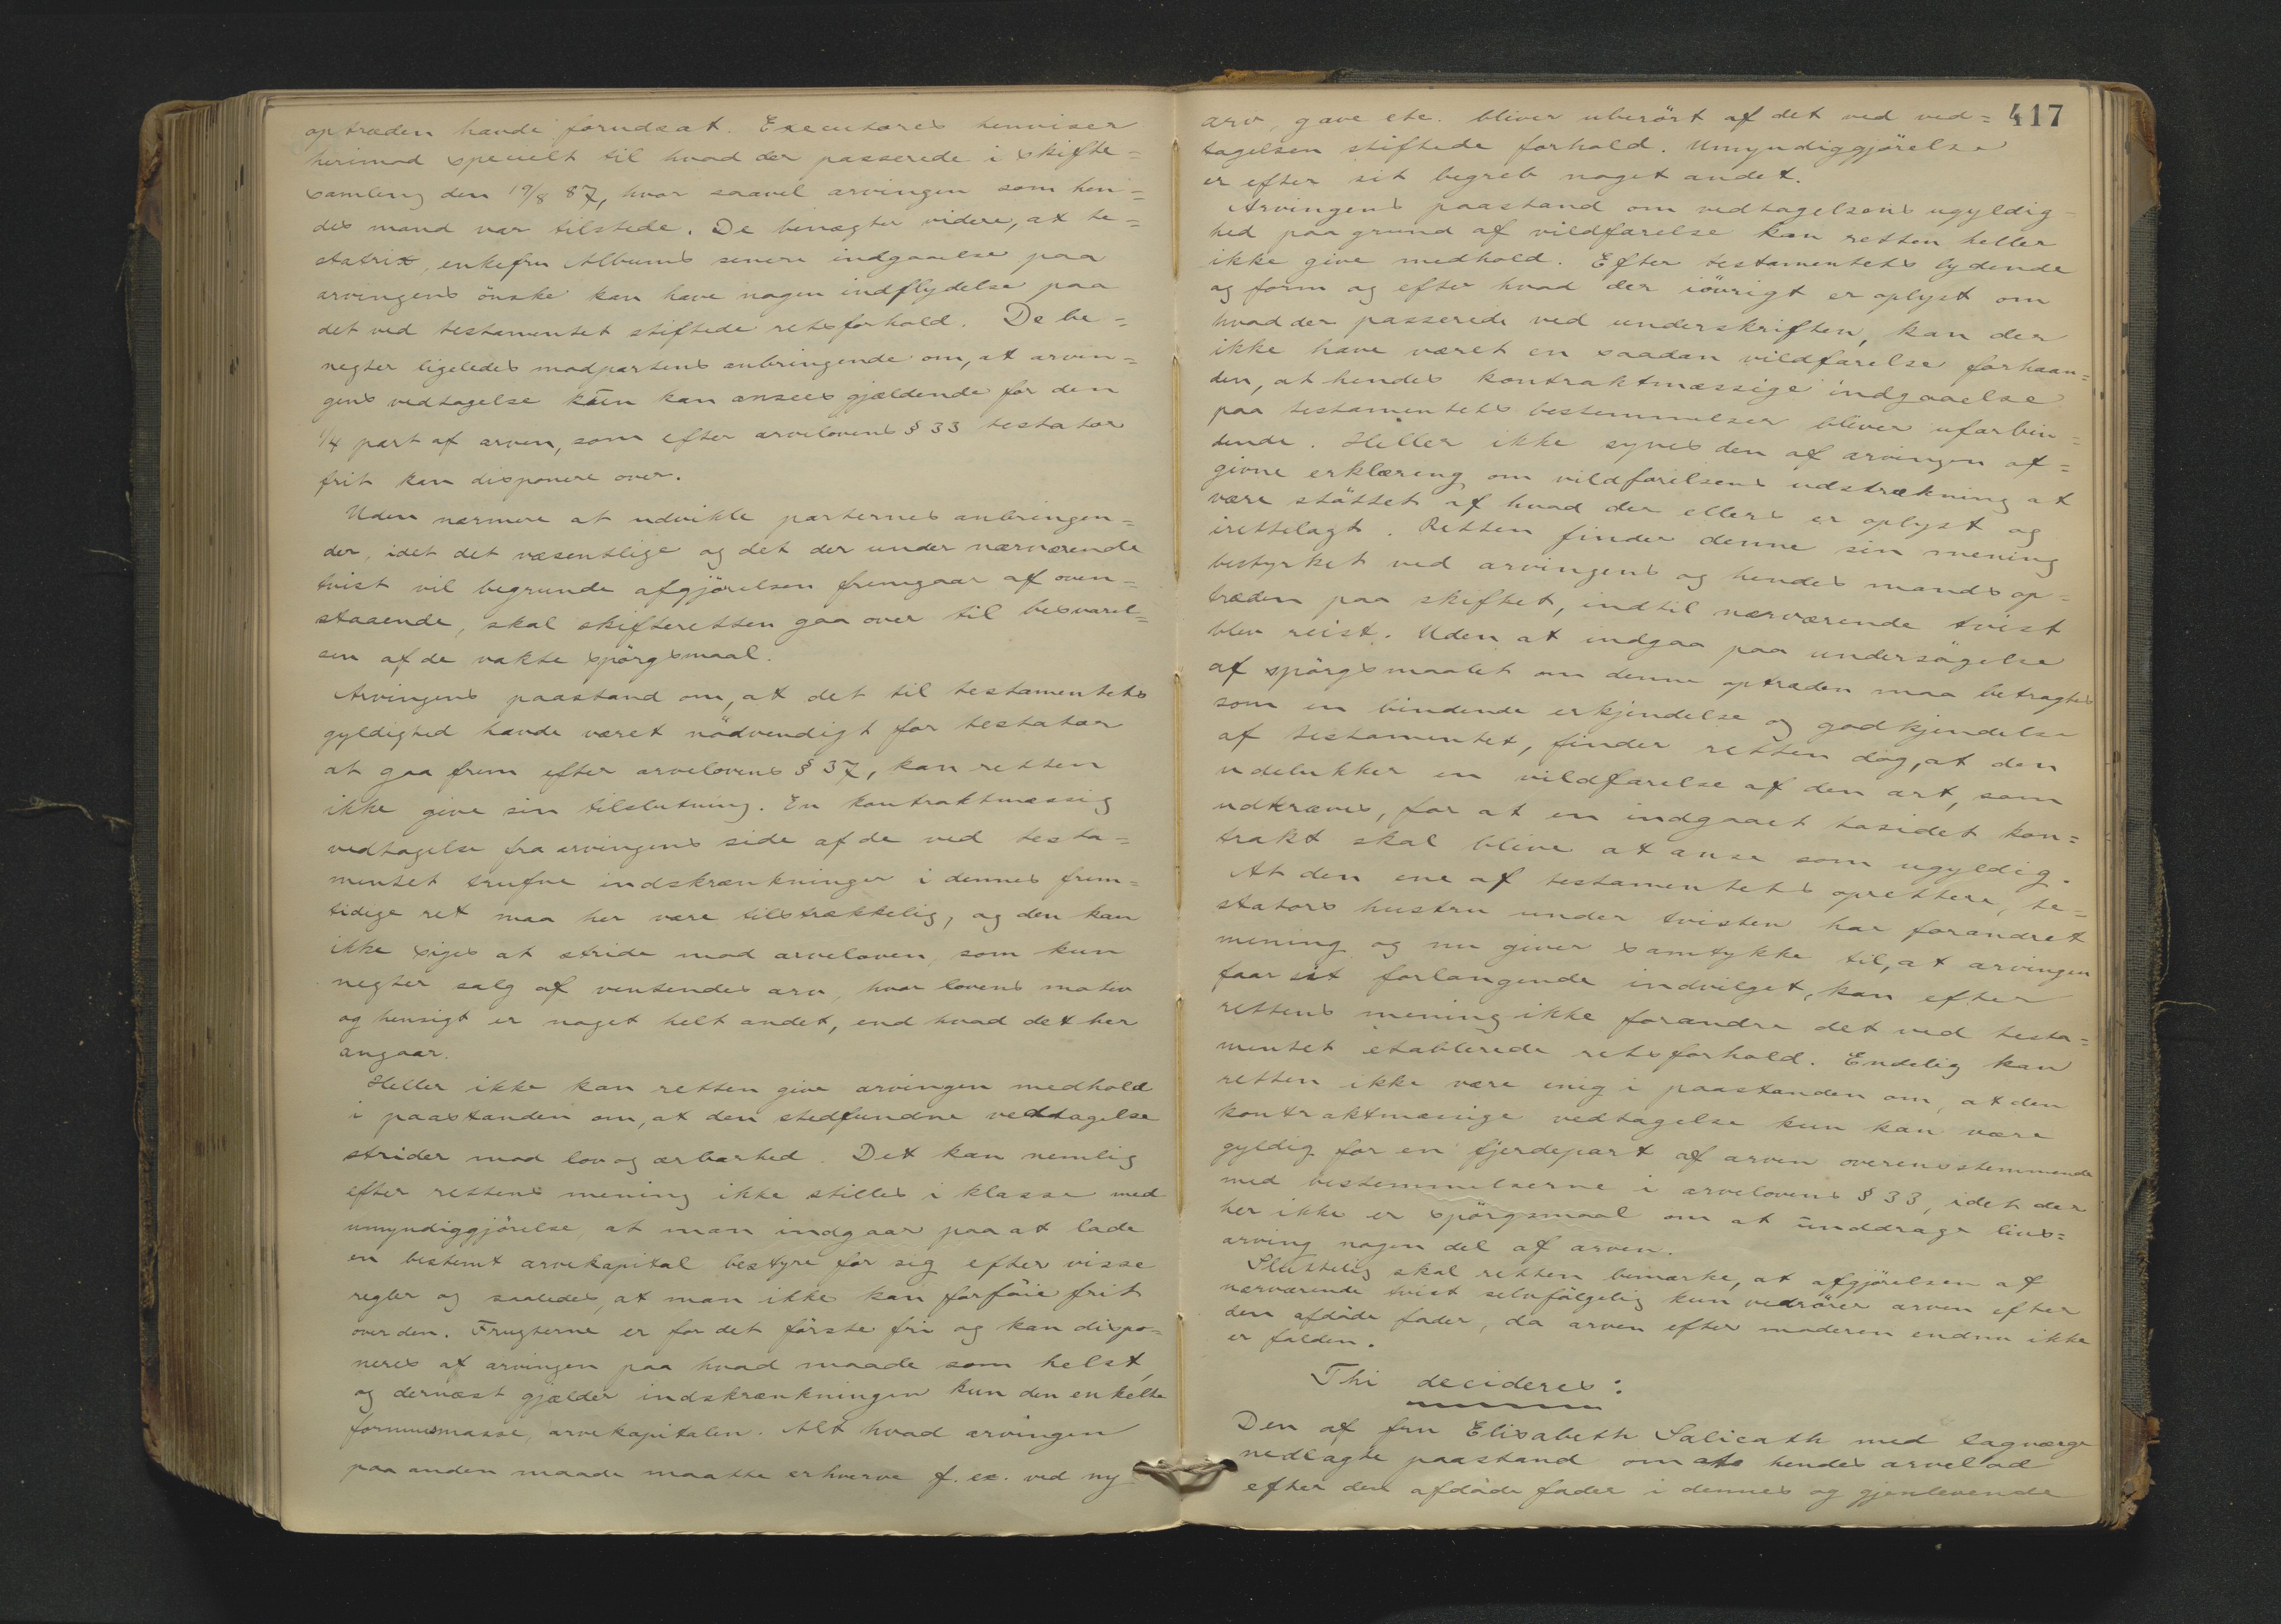 optræden havde forudsat. Executores henviser
herimod specielt til hvad der passerede i skifte=
samling den 19/8 87, hvor saavel arvingen som hen=
des mand var tilstede. De benægter videre, at te=
statrix, enkefru Albums senere indgaaelse paa
arvingens önske kan have nogen indflydelse paa
det ved testamentet stiftede retsforhold. De be=
negter ligeledes modpartens anbringende om, at arvin=
gens vedtagelse kun kan ansees gjældende for den
1/4 part af arven, som efter arvelovens § 33 testator
frit kan disponere over.
Uden nærmere at udvikle parternes anbringen=
der, idet det væsentlige og det der under nærværende
tvist vil begrunde afgjörelsen fremgaar af oven=
staaende, skal skifteretten gaa over til besvarel=
sen af de vakte spörgsmaal.
Arvingens paastand om, at det til testamentets
gyldighed havde været nödvendigt for testator
at gaa frem efter arvelovens § 37, kan retten
ikke give sin tilslutning. En kontraktmæssig
vedtagelse fra arvingens side af de ved testa=
mentet trufne indskrænkninger i dennes frem=
tidige ret maa her være tilstrækkelig, og den kan
ikke siges at stride mod arveloven, som kun
negter salg af ventendes arv, hvor lovens motiv
og hensigt er noget helt andet, end hvad det her
angaar.
Heller ikke kan retten give arvingen medhold
i paastanden om, at den stedfundne vedtagelse
strider mod lov og ærbarhed. Det kan nemlig
efter rettens mening ikke stilles i klasse med
umyndiggjörelse, at man indgaar paa at lade
en bestemt arvekapital bestyre for sig efter visse
regler og saaledes, at man ikke kan forföie frit
over den. Frugterne er for det förste fri og kan dispo=
neres af arvingen paa hvad maade som helst,
og dernæst gjælder indskrænkningen kun den enkelte
formuesmasse, arvekapitalen. Alt hvad arvingen
paa anden maade maatte erhverve f. ex. ved ny
417
arv, gave etc. bliver uberört af det ved ved=
tagelsen stiftede forhold. Umyndiggjörelse
er efter sit begreb noget andet.
Arvingens paastand om vedtagelsens ugyldig=
hed paa grund af vildfarelse kan retten heller
ikke give medhold. Efter testamentets lydende
og form og efter hvad der iövrigt er oplyst om
hvad der passerede ved underskriften, kan der
ikke have været en saadan vildfarelse forhaan=
den, at hendes kontraktmæssige indgaaelse
paa testamentets bestemmelser bliver uforbin=
dende. Heller ikke synes den af arvingen af=
givne erklæring om vildfarelsens udstrækning at
være stöttet af hvad der ellers er oplyst og
irettelagt. Retten finder denne sin mening
bestyrket ved arvingens og hendes mands op=
træden paa skiftet, indtil nærværende tvist
blev reist. Uden at indgaa paa undersögelse
af spörgsmaalet om denne optræden maa betragtes
som en bindende erkjendelse og godkjendelse
af testamentet, finder retten dog, at den
udelukker en vildfarelse af den art, som
udkræves, for at en indgaaet tosidet kon=
trakt skal blive at anse som ugyldig.
At den ene af testamentets oprettere, te=
stators hustru under tvisten har forandret
mening og nu giver samtykke til, at arvingen
faar sit forlangende indvilget, kan efter
rettens mening ikke forandre det ved testa=
mentet etablerede retsforhold. Endelig kan
retten ikke være enig i paastanden om, at den
kontraktmæssige vedtagelse kun kan være
gyldig for en fjerdepart af arven overensstemmende
med bestemmelserne i arvelovens § 33, idet der
her ikke er spörgsmaal om at unddrage livs=
arving nogen del af arven.
Sluttelig skal retten bemærke, at afgjörelsen af
nærværende tvist selvfölgelig kun vedrörer arven efter
den afdöde fader, da arven efter moderen endnu ikke
er falden.
Thi decideres:
Den af fru Elisabeth Salicath med lagværge
nedlagte paastand om at hendes arvelod
efter den afdöde fader i dennes og gjenlevende